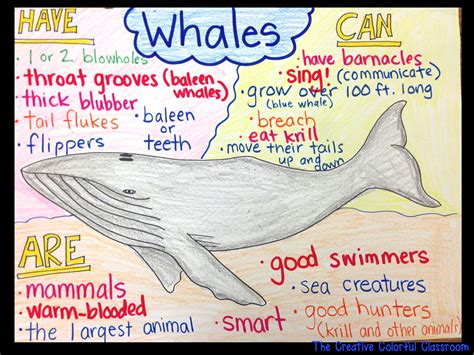 Whales
HAVE
• 1 or 2 blowholes
• throat grooves (baleen
whales)
• thick blubber
• tail flukes
• flippers
• baleen
or
teeth
CAN
• have barnacles
• sing! (communicate)
• grow over 100 ft. long
(blue whale)
• breach
• eat krill
• move their tails
up and down
ARE
• mammals
• warm-blooded
• the largest animal
• smart
• good swimmers
• sea creatures
• good hunters
(krill and other animals)
The Creative Colorful Classroom